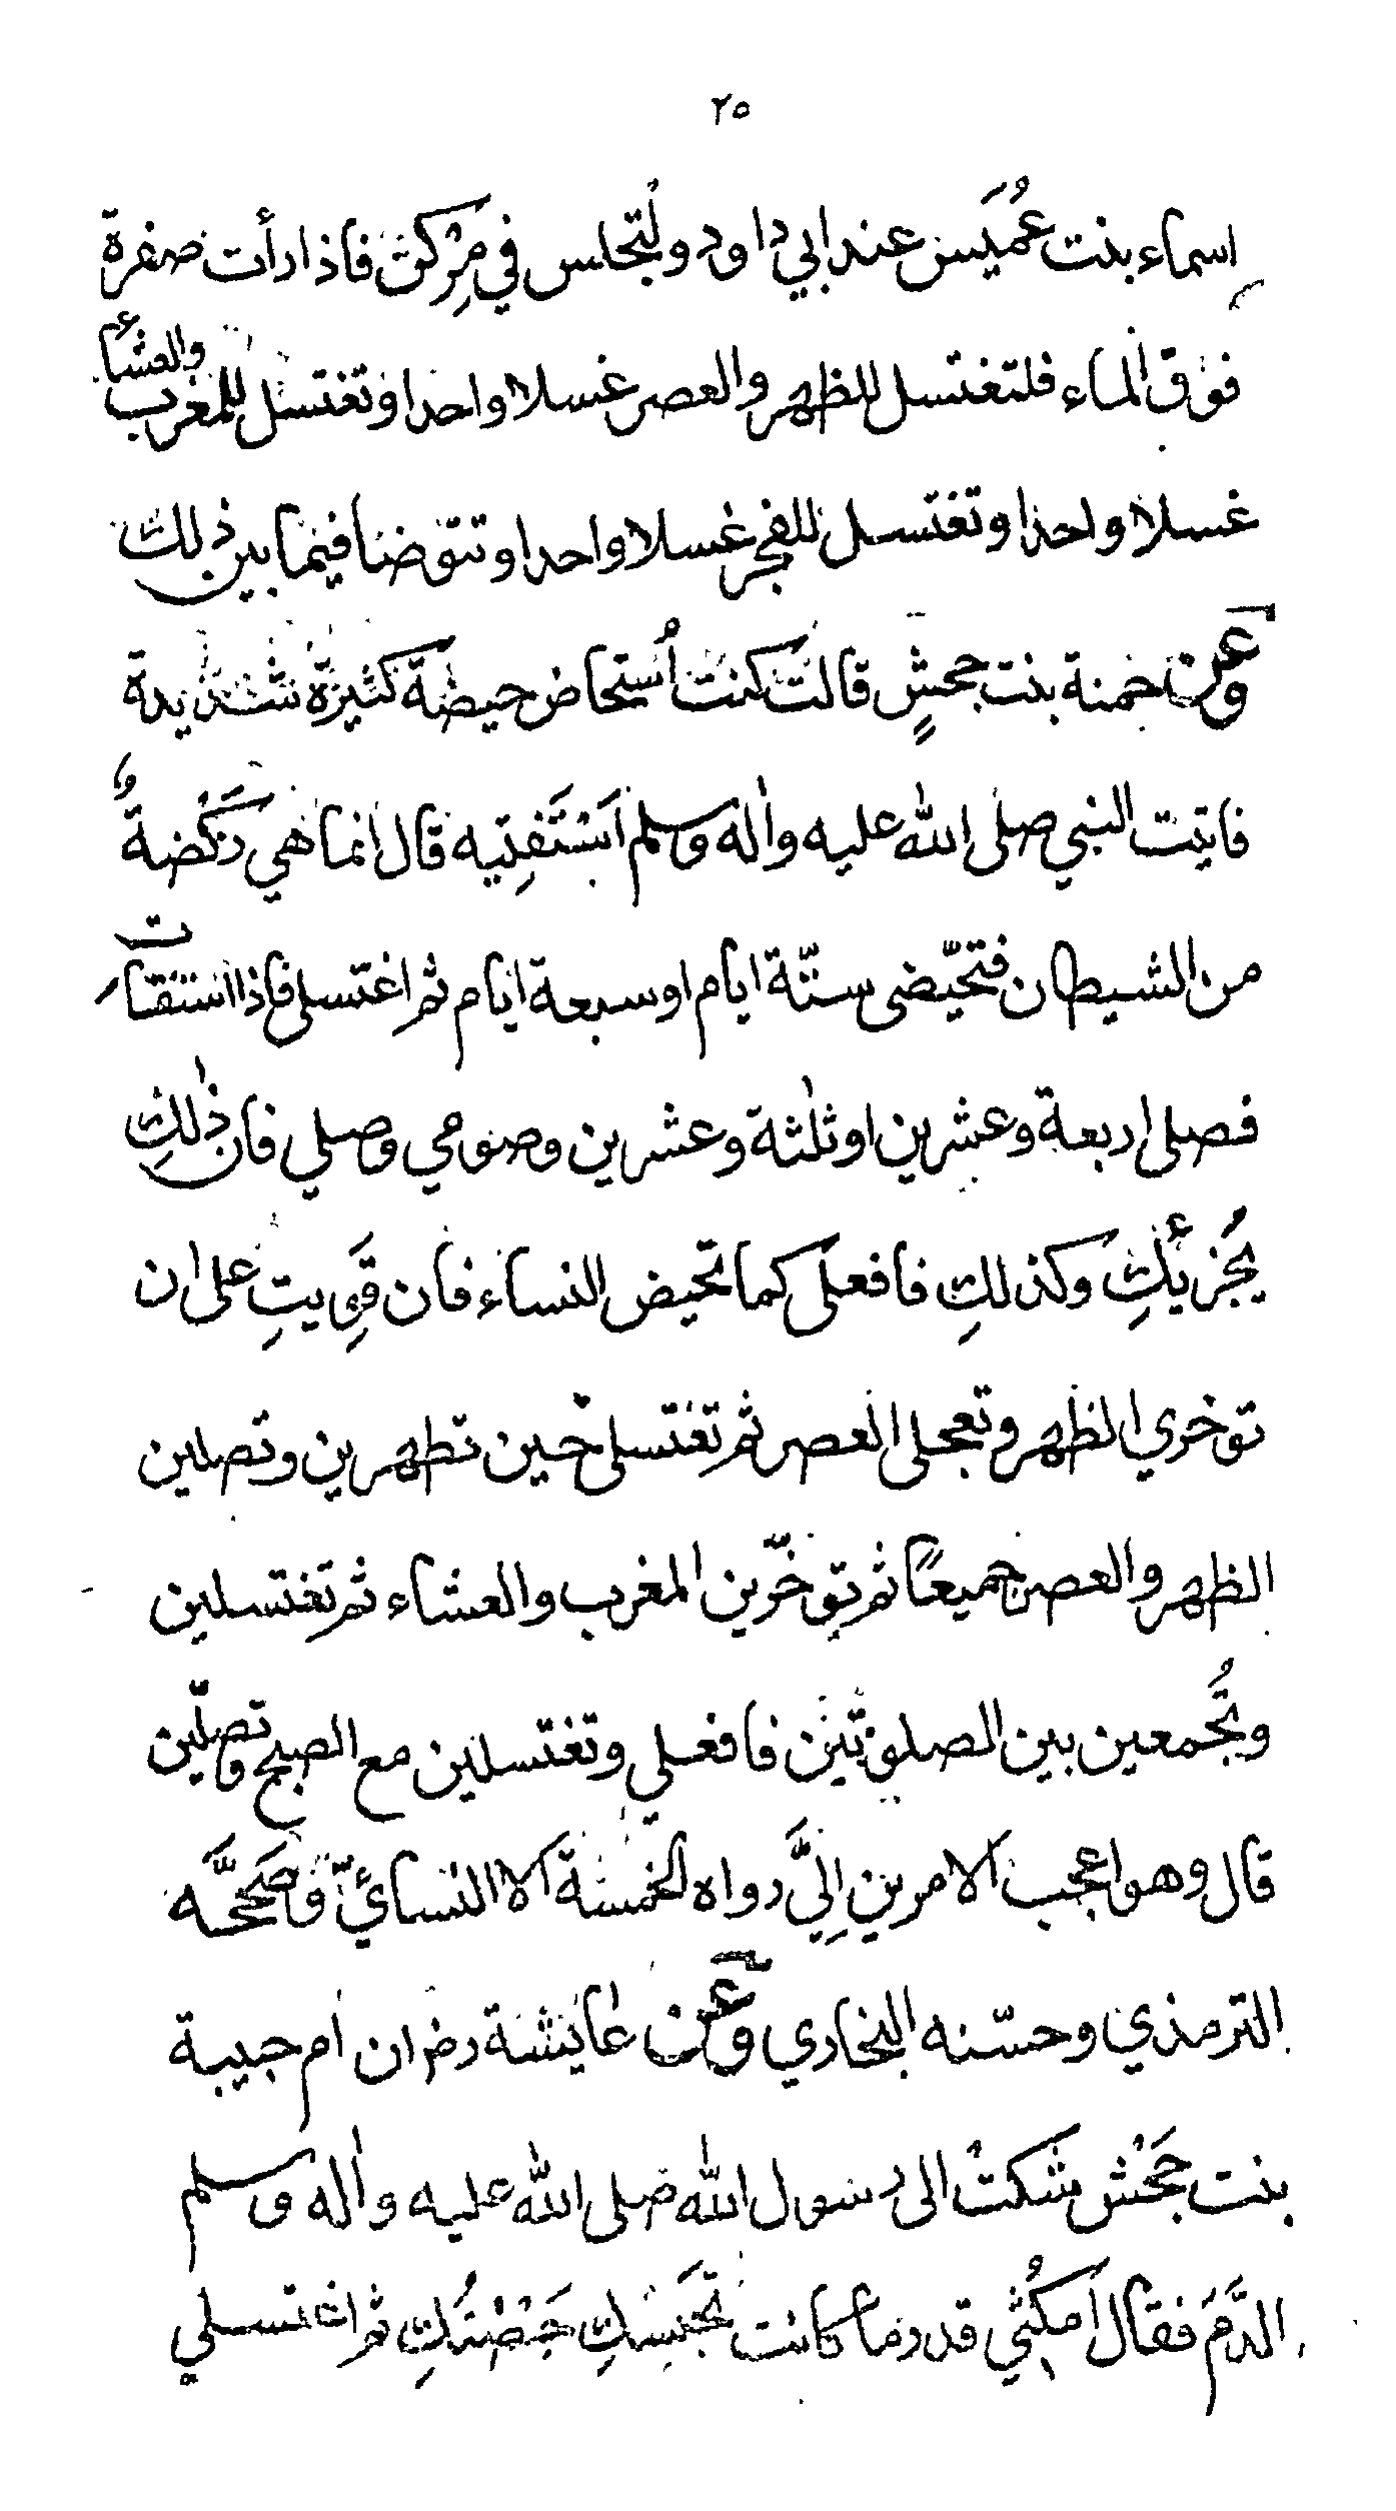 ٢٥
اسماء بنت عُمَيس عند ابي داود ولتُجلس في مِرْكن فاذا رأت صفرة
فوق الماء فلتغتسل للظهر والعصر غسلا واحدا وتغتسل للمغرب والعشأ
غسلا واحدا وتغتسل للفجر غسلا واحدا وتتوّضا فيما بين ذلك
وعن حمنة بنت جحشٍ قالت كنت اُستحاض حيضة كثيرة شديدة
فاتيت النبي صلى الله عليه واٰله وسلم اَسْتَفتِيه قال انما هي رَكْضةٌ
من الشيطان فتحيّضى ستّة ايام او سبعة ايام ثم اغتسلى فاذا استنقات
فصلى اربعة وعشرين او ثلٰثة وعشرين وصومي وصلي فان ذٰلكِ
يُجزئكِ وكذلكِ فافعلى كما تحيض النساء فان قَوِيتِ على ان
توخري الظهر وتعجلى العصر ثم تغتسلى حين تطهرين وتصلين
الظهر والعصر جميعًا ثم توخّرين المغرب والعشاء ثم تغتسلين
وتُجمعين بين الصلوتين فافعلي وتغتسلين مع الصبح وتصلّين
قال وهو اعجب الامرين اِليَّ رواه الخمسة الا النسائيّ وصَحَّحَه
الترمذي وحسّنه البخاري وعن عايشة رض ان ام حبيبة
بنت جَحْش شكتْ الى رسول الله صلى الله عليه واٰله وسلم
الدَّمَ فقال اُمكُثي قدر ما كانت تحبَسِكِ حَيْضَتُكِ ثم اغتسلي